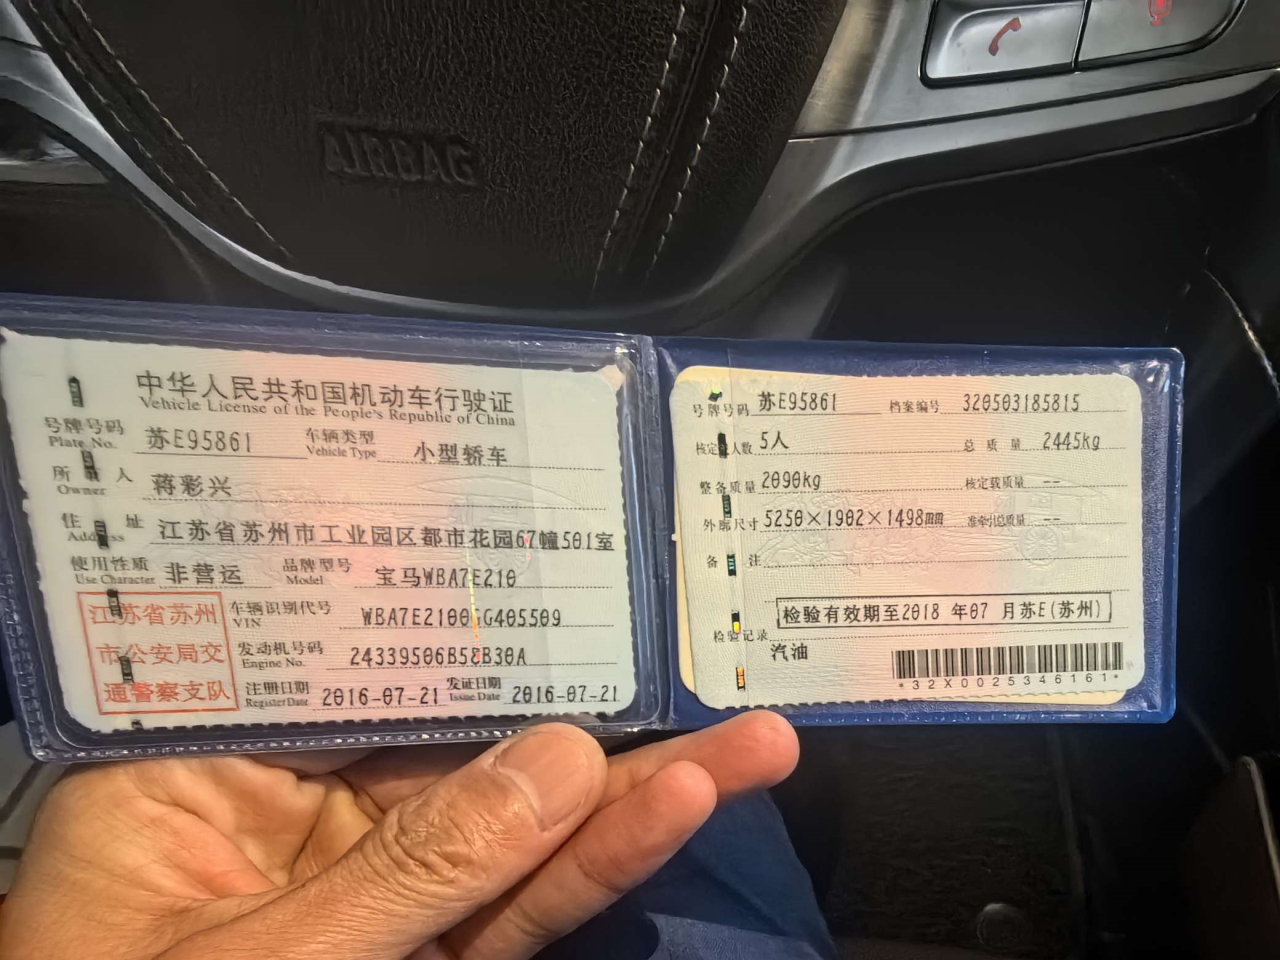 AIRBAG
中华人民共和国机动车行驶证
Vehicle License of the People's Republic of China
号牌号码 苏E95861 车辆类型 小型轿车
Plate No. Vehicle Type
所有人 蒋彩兴
Owner
住址 江苏省苏州市工业园区都市花园67幢501室
Address
使用性质 非营运 品牌型号 宝马WBA7E210
Use Character Model
江苏省苏州
市公安局交
通警察支队
车辆识别代号 WBA7E2100GG405509
VIN
发动机号码 24339506B58B30A
Engine No.
注册日期 2016-07-21 发证日期 2016-07-21
Register Date Issue Date
号牌号码 苏E95861 档案编号 320503185815
核定载人数 5人 总质量 2445kg
整备质量 2090kg 核定载质量 --
外廓尺寸 5250×1902×1498mm 准牵引总质量 --
备注
检验有效期至2018 年07 月苏E(苏州)
检验记录
汽油
*32X0025346161*